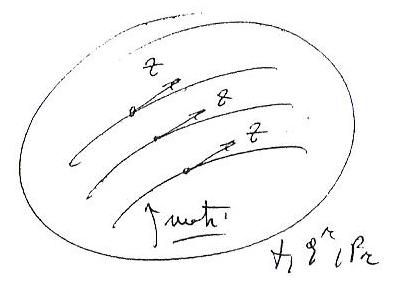 Z
Z
Z
moti
t, q^r, p_r